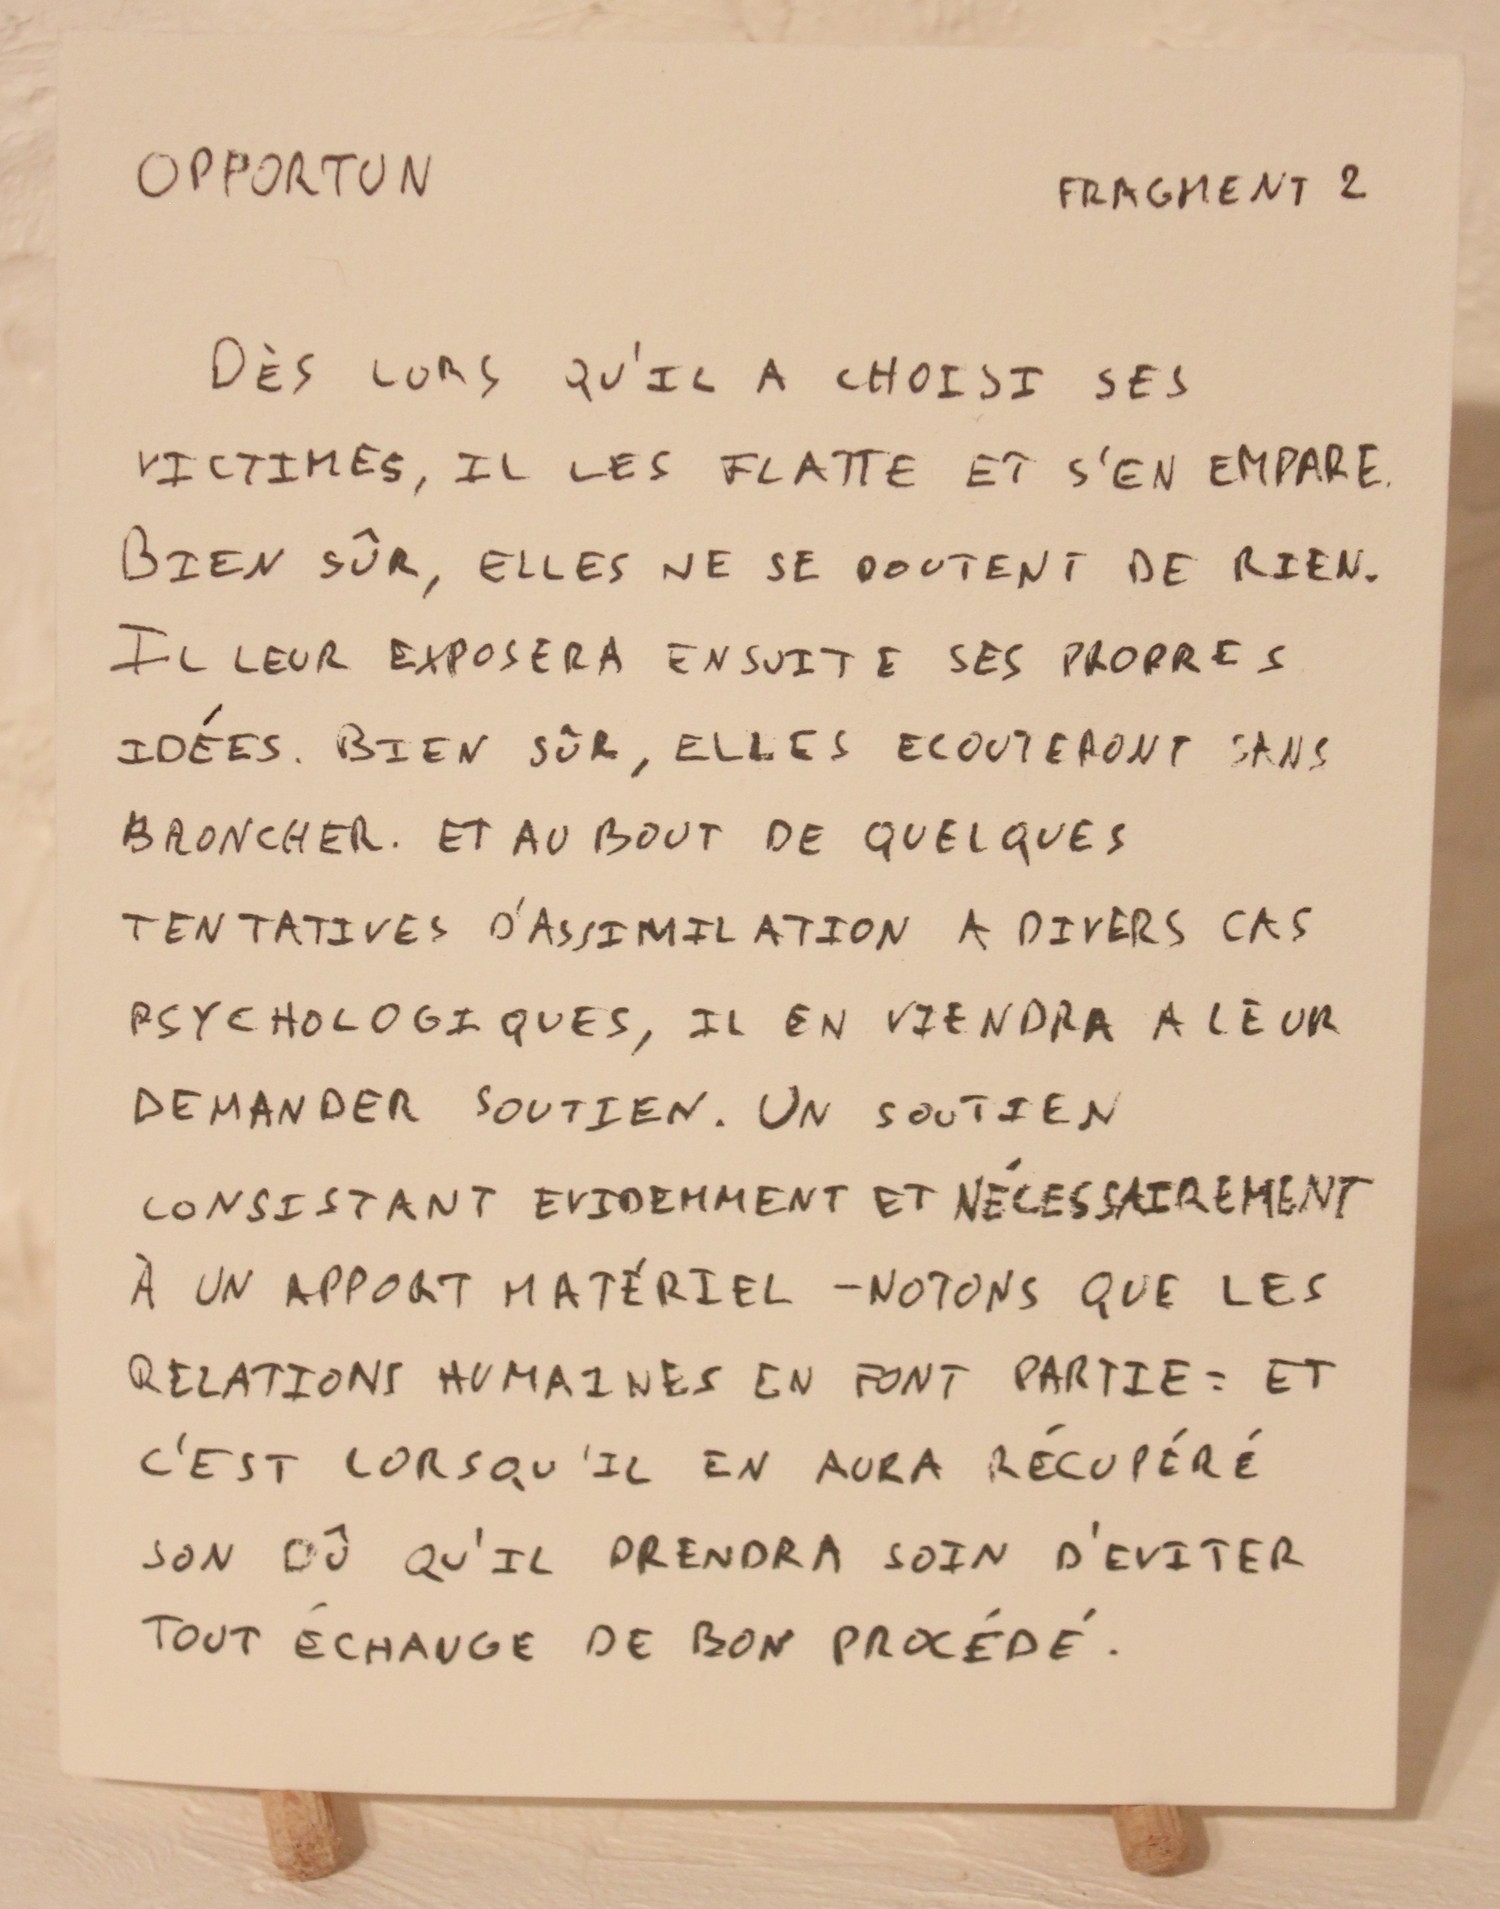 OPPORTUN
FRAGMENT 2
DÈS LORS QU'IL A CHOISI SES
VICTIMES, IL LES FLATTE ET S'EN EMPARE.
BIEN SÛR, ELLES NE SE DOUTENT DE RIEN.
IL LEUR EXPOSERA ENSUITE SES PROPRES
IDÉES. BIEN SÛR, ELLES ECOUTERONT SANS
BRONCHER. ET AU BOUT DE QUELQUES
TENTATIVES D'ASSIMILATION A DIVERS CAS
PSYCHOLOGIQUES, IL EN VIENDRA A LEUR
DEMANDER SOUTIEN. UN SOUTIEN
CONSISTANT EVIDEMMENT ET NÉCESSAIREMENT
À UN APPORT MATÉRIEL –NOTONS QUE LES
RELATIONS HUMAINES EN FONT PARTIE= ET
C'EST LORSQU'IL EN AURA RÉCUPÉRÉ
SON DÛ QU'IL PRENDRA SOIN D'EVITER
TOUT ÉCHANGE DE BON PROCÉDÉ.